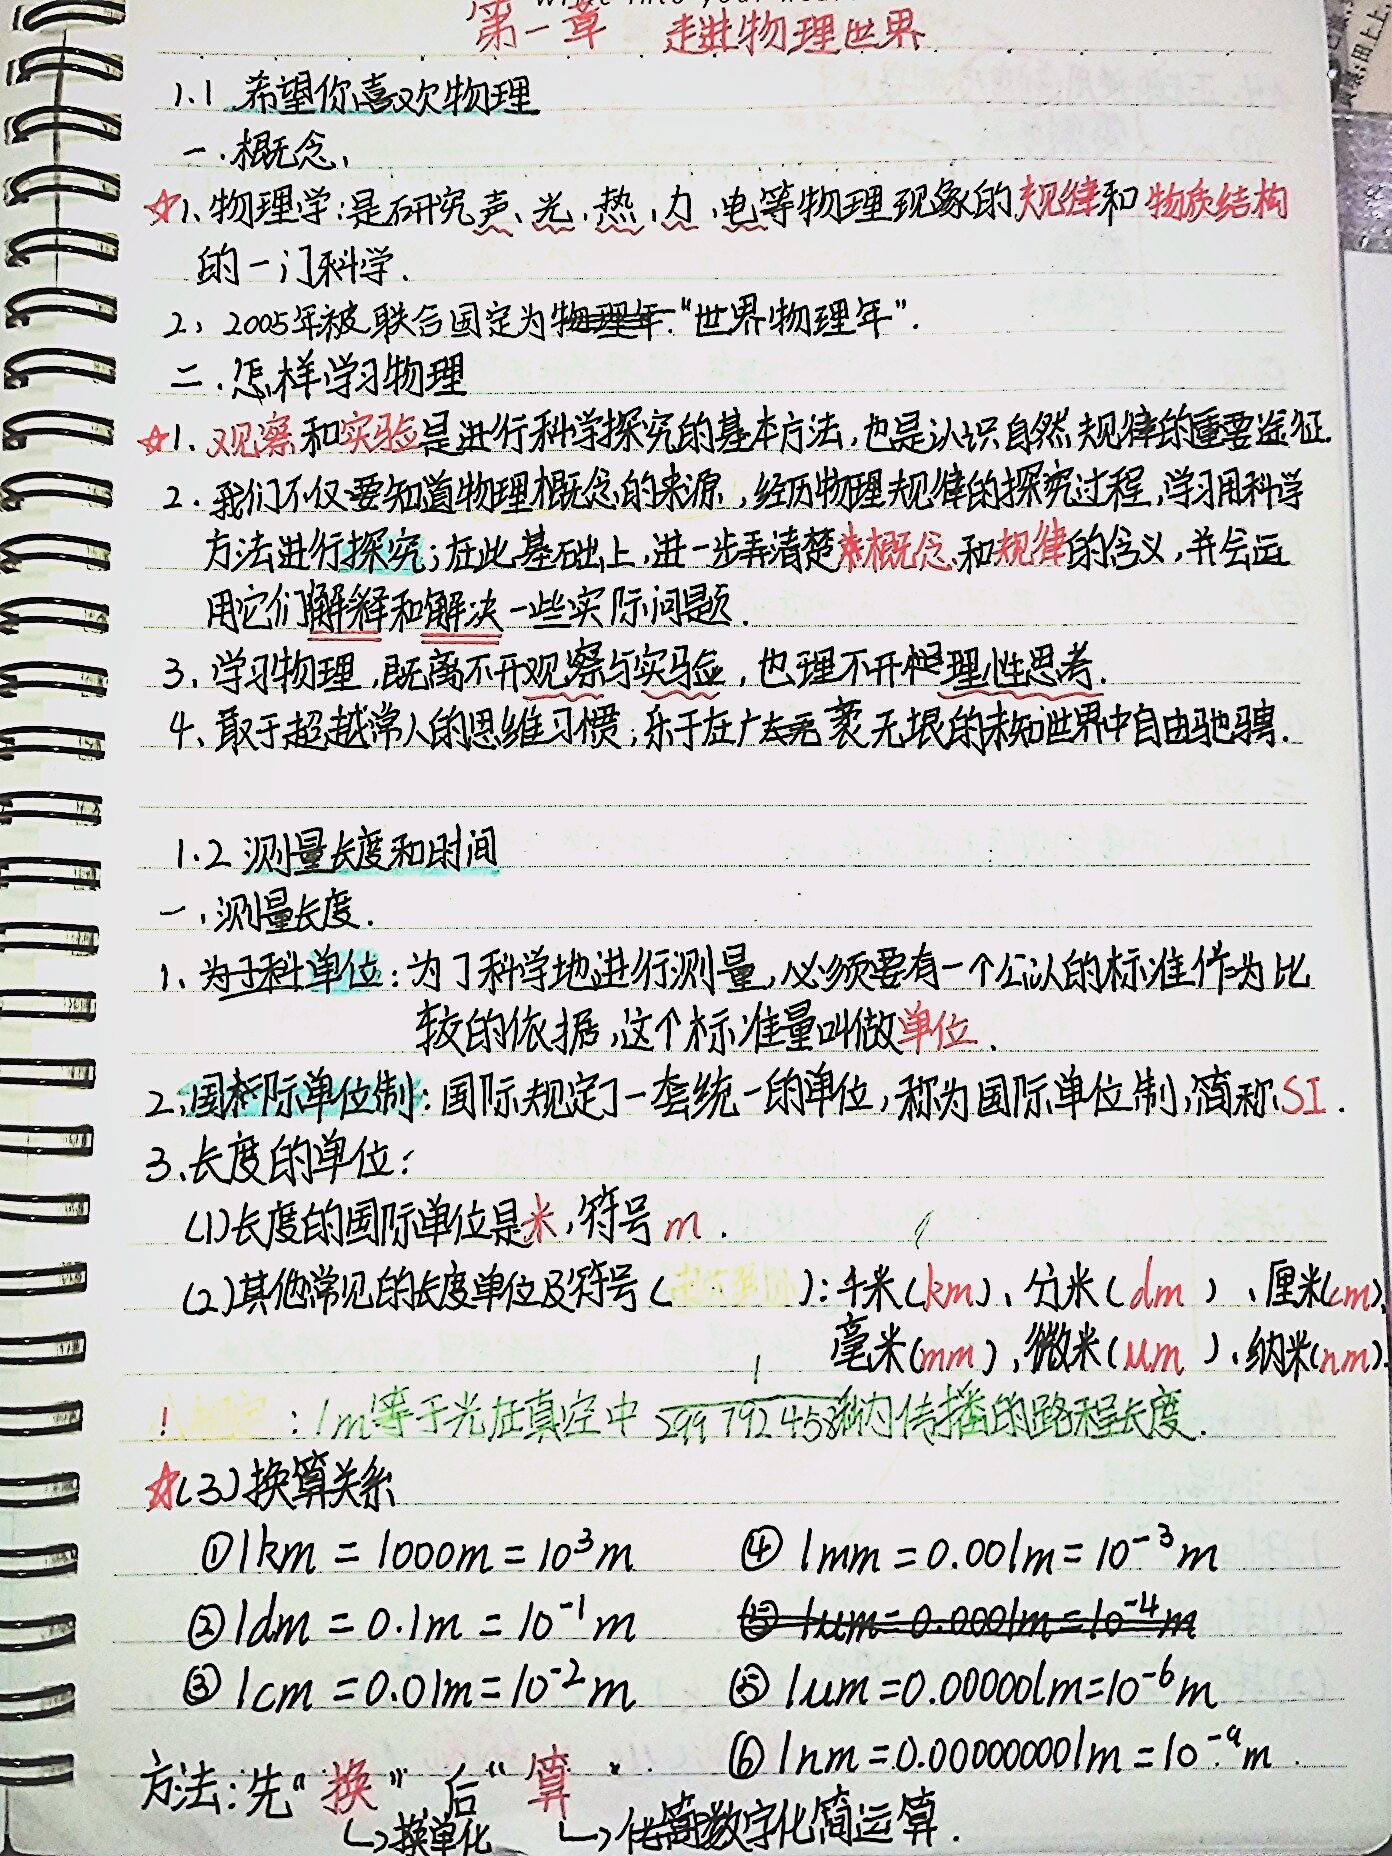 第一章 走进物理世界
1.1 希望你喜欢物理
一.概念、
☆1、物理学:是研究声、光、热、力、电等物理现象的规律和物质结构
的一门科学.
2、2005年被联合国定为物理年"世界物理年".
二.怎样学习物理
☆1.观察和实验是进行科学探究的基本方法,也是认识自然规律的重要途征.
2.我们不仅要知道物理概念的来源,经历物理规律的探究过程,学习用科学
方法进行探究;在此基础上,进一步弄清楚概念和规律的含义,并会运
用它们解释和解决一些实际问题.
3、学习物理,既离不开观察与实验,也理不开理性思考.
4、敢于超越常人的思维习惯;乐于在广袤无垠的未知世界中自由驰骋.
1.2 测量长度和时间
一、测量长度.
1、为了科单位:为了科学地进行测量,必须要有一个公认的标准作为比
较的依据,这个标准量叫做单位.
2、国际单位制:国际规定了一套统一的单位,称为国际单位制,简称SI.
3、长度的单位:
(1)长度的国际单位是米,符号m.
(2)其他常见的长度单位及符号( ):千米(km)、分米(dm)、厘米(cm)、
毫米(mm)、微米(μm)、纳米(nm).
! :1m等于光在真空中1/299 792 458秒内传播的路程长度.
☆(3)换算关系
①1km=1000m=10³m ④1mm=0.001m=10⁻³m
②1dm=0.1m=10⁻¹m ⑤1um=0.0001m=10⁻⁴m
③1cm=0.01m=10⁻²m ⑤1um=0.000001m=10⁻⁶m
⑥1nm=0.000000001m=10⁻⁹m.
方法:先"换"后"算
↳换单化 ↳化简数字化简运算.